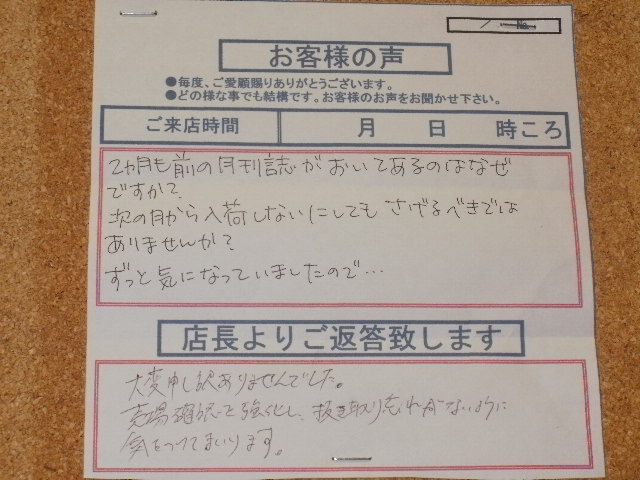 No.
お客様の声
●毎度、ご愛顧賜りありがとうございます。
●どの様な事でも結構です。お客様のお声をお聞かせ下さい。
ご来店時間 月 日 時ころ
2ヵ月も前の月刊誌がおいてあるのはなぜ
ですか?
次の月から入荷しないにしてもさげるべきでは
ありませんか?
ずっと気になっていましたので…
店長よりご返答致します
大変申し訳ありませんでした。
売場確認を強化し、抜き取りもれがないように
気をつけてまいります。